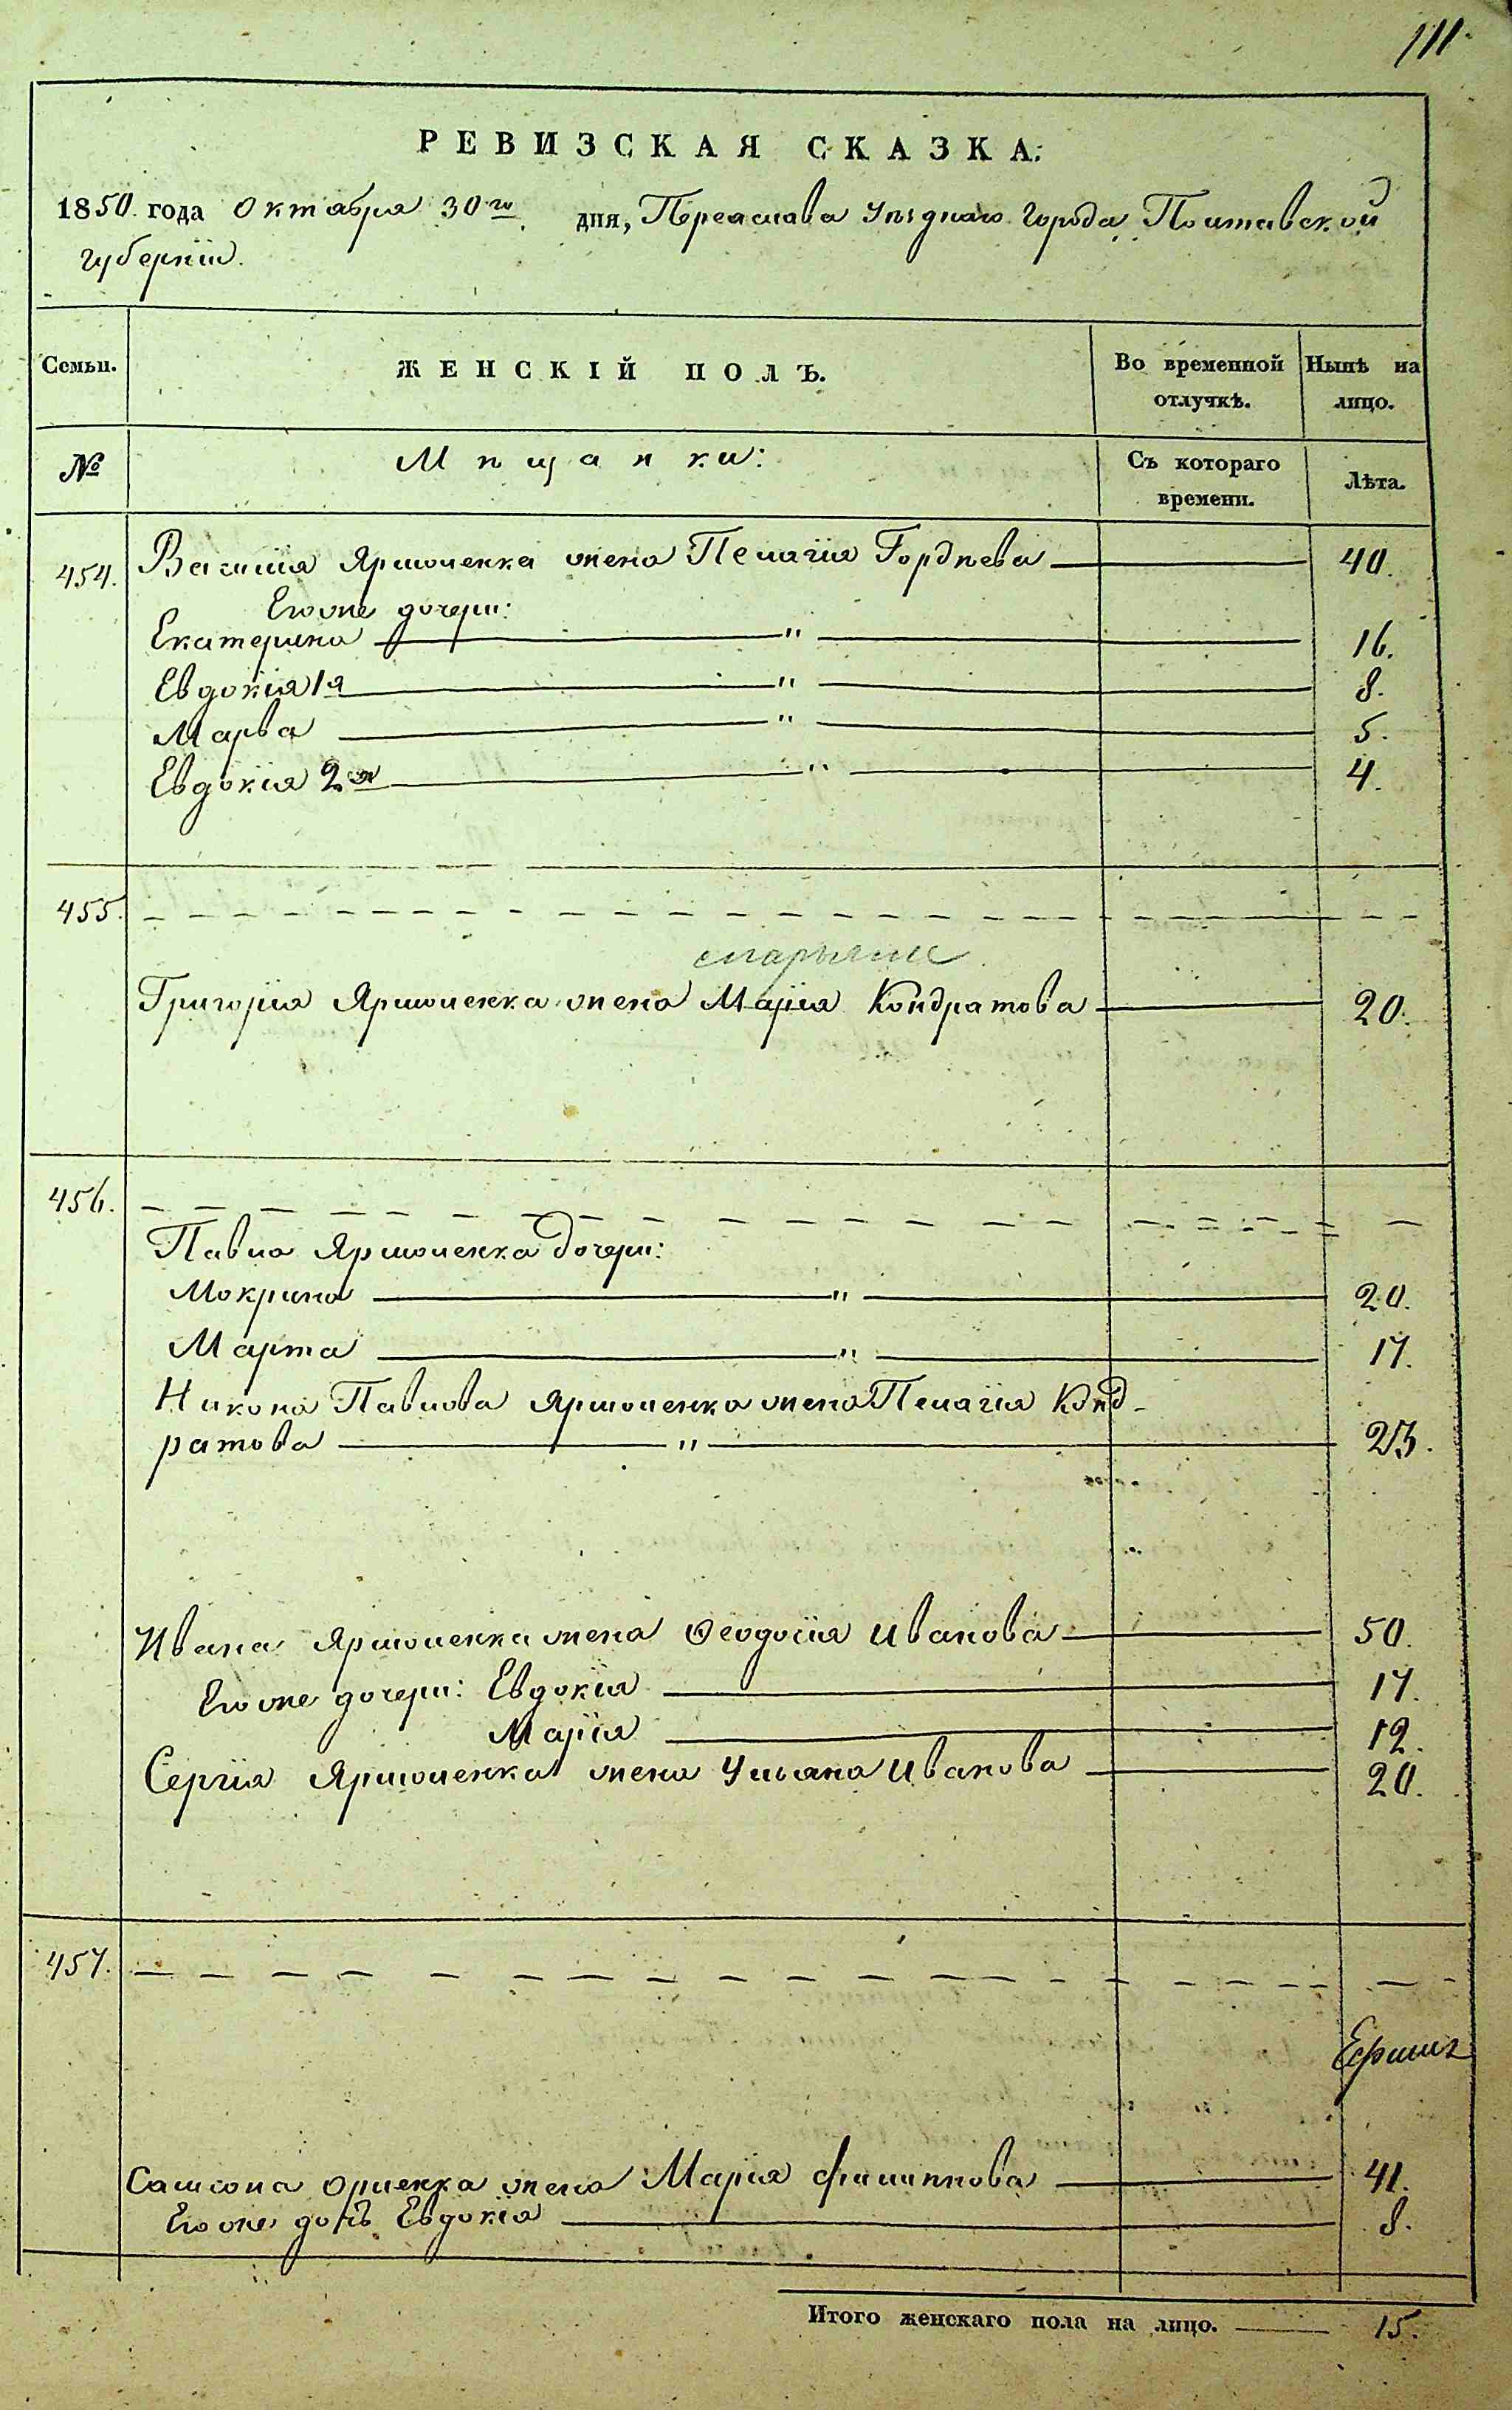 111.
РЕВИЗСКАЯ СКАЗКА:
1850. года Октября 30го дня, Переаслава Уѣзднаго Города Полтавской
губернiи.
Семьи. ЖЕНСКІЙ ПОЛЪ. Во временной отлучкѣ. Нынѣ на лицо.
№ Мѣщанки: Съ котораго времени. Лѣта.
454. Василія Ярмоленка жена Пелагія Гордѣева 40.
Егоже дочери:
Екатерина " 16.
Евдокія 1я " 8.
Марѳа " 5.
Евдокія 2я " 4.
455.
Григорія Ярмоленка жена Марія Кондратова 20.
456.
Павла Ярмоленка дочери:
Мокрина " 20.
Марта " 17.
Никона Павлова Ярмоленка жена Пелагія Конд-
ратова " 23.
Ивана Ярмоленка жена Ѳеодосія Иванова 50.
Егоже дочери: Евдокія 17.
Марія 12.
Сергія Ярмоленка жена Ульяна Иванова 20.
457.
Самсона жена Марія Филиппова 41.
Егоже дочь Евдокія 8.
Итого женскаго пола на лицо. 15.